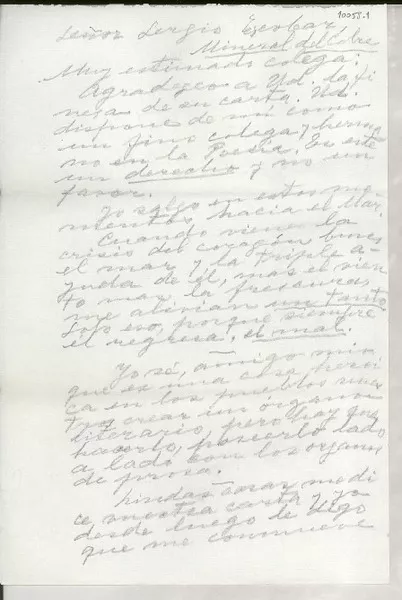 10058.1
Señor Sergio Escobar
Mineral del Cobre
Muy estimado colega:
Agradezco a Ud. la fi
neza de su carta. Ud.
dispone de mí como
un fino colega y herma
no en la Poesía. Es este
un derecho y no un
favor.
Yo salgo en estos mo
mentos hacia el Mar.
Cuando viene la
crisis del corazón busco
el mar y la triple a-
yuda de él, mas el vien
to mar la frescura
me alivian un tanto
Solo eso, porque siempre
el regresa, el mal.
Yo sé, amigo mío
que es una cosa heroi
ca en los pueblos nues
tros crear un órgano
literario, pero hay que
hacerlo, ponerlo lado
a lado con los organos
de prosa.
Lindas cosas me di
ce nuestra carta y yo
desde luego le digo
que me conmueve